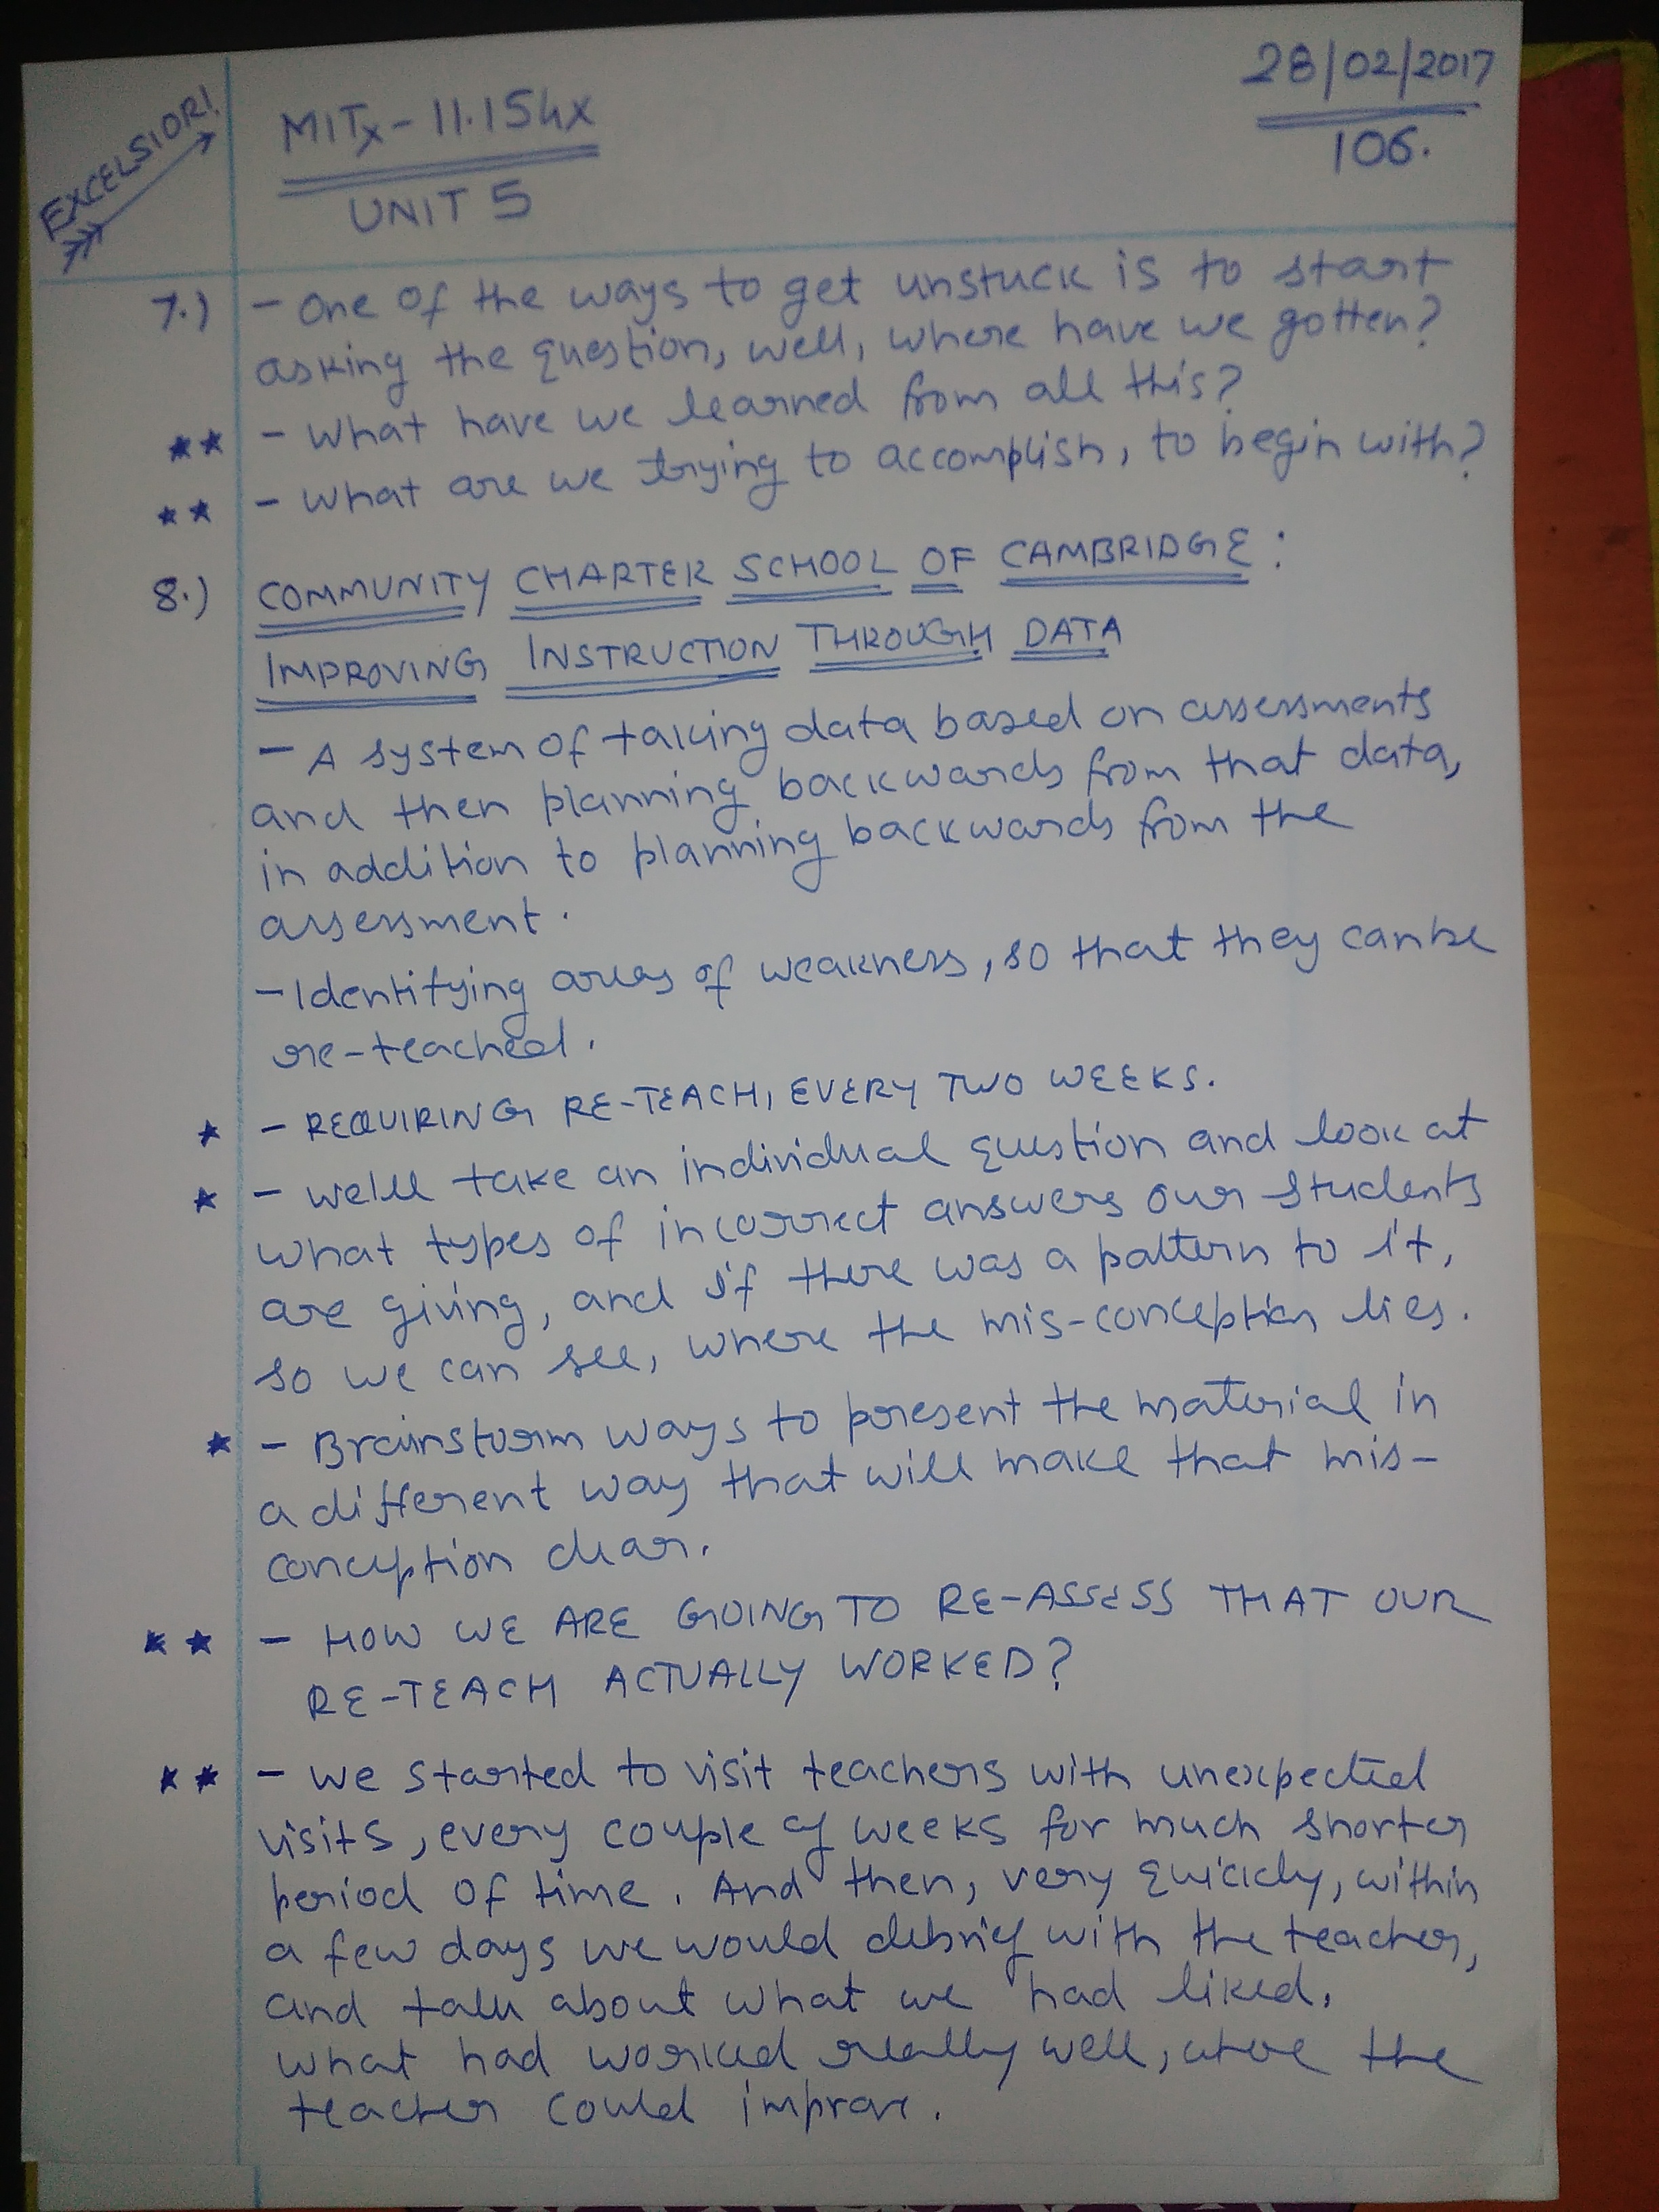 EXCELSIOR!
MITx - 11.154x
UNIT 5
28/02/2017
106.
7.) - One of the ways to get unstuck is to start
asking the question, well, where have we gotten?
★★ - What have we learned from all this?
★★ - What are we trying to accomplish, to begin with?
8.) COMMUNITY CHARTER SCHOOL OF CAMBRIDGE:
IMPROVING INSTRUCTION THROUGH DATA
- A system of taking data based on assessments
and then planning backwards from that data,
in addition to planning backwards from the
assessment.
- Identifying areas of weakness, so that they can be
re-teached.
★ - REQUIRING RE-TEACH, EVERY TWO WEEKS.
★ - We'll take an individual question and look at
what types of incorrect answers our students
are giving, and if there was a pattern to it,
so we can see, where the mis-conception lies.
★ - Brainstorm ways to present the material in
a different way that will make that mis-
conception clear.
★★ - HOW WE ARE GOING TO RE-ASSESS THAT OUR
RE-TEACH ACTUALLY WORKED?
★★ - We started to visit teachers with unexpected
visits, every couple of weeks for much shorter
period of time. And then, very quickly, within
a few days we would debrief with the teacher,
and talk about what we had liked.
What had worked really well, where the
teacher could improve.